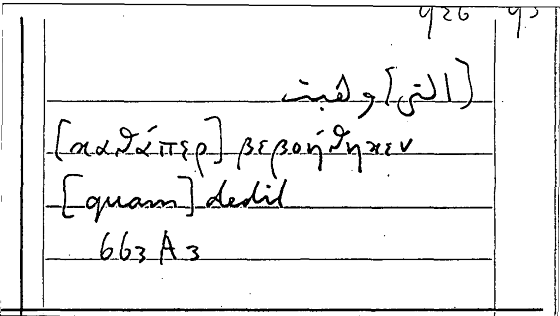 [التى] وهبت
[καθάπερ] βεβοήθηκεν
[quam] dedit
663 A 3